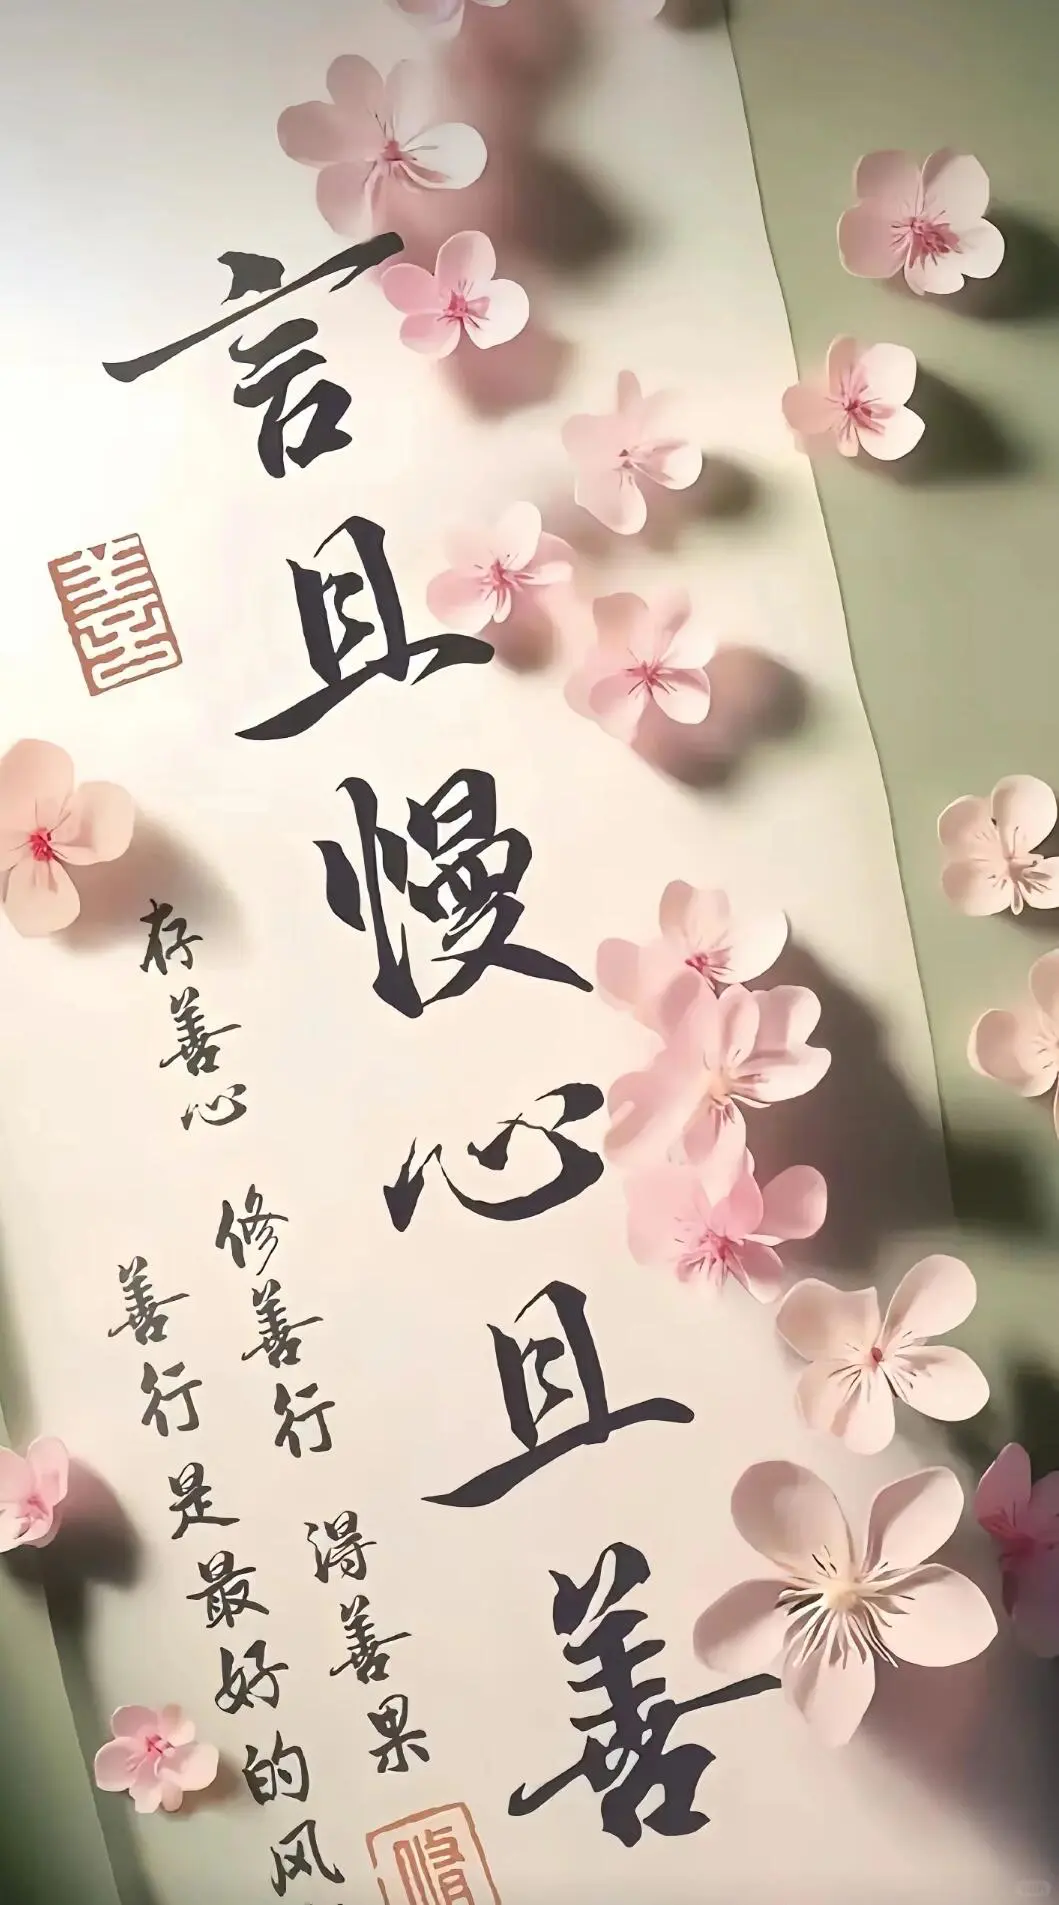 言且慢心且善
存善心 修善行 得善果
善行是最好的风
善
修